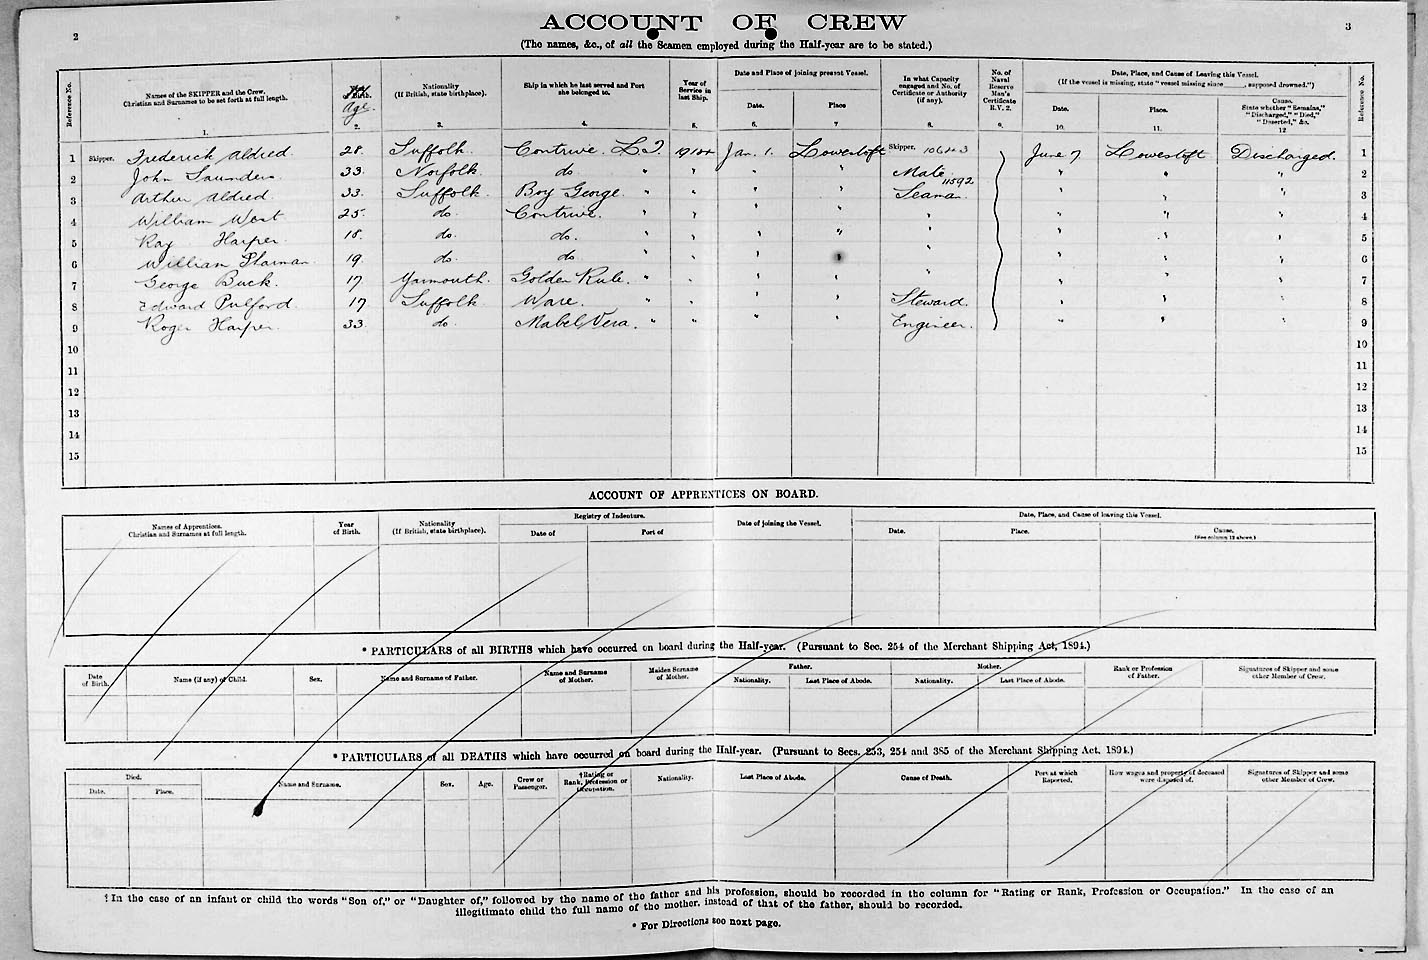 2
ACCOUNT OF CREW
3
(The names, &c., of all the Seamen employed during the Half-year are to be stated.)
Reference No.
Names of the SKIPPER and the Crew.
Christian and Surnames to be set forth at full length.
1.
Birth.
Age.
2.
Nationality
(If British, state birthplace).
3.
Ship in which he last served and Port
she belonged to.
4.
Year of
Service in
last Ship.
5.
Date and Place of joining present Vessel.
Date.
6.
Place
7
In what Capacity
engaged and No. of
Certificate or Authority
(if any).
8.
No. of
Naval
Reserve
Man's
Certificate
R.V. 2.
9.
Date, Place, and Cause of Leaving this Vessel.
(If the vessel is missing, state "vessel missing since ____, supposed drowned.")
Date.
10.
Place.
11.
Cause.
State whether "Remains,"
"Discharged," "Died,"
"Deserted," &c.
12
Reference No.
1 Skipper. Frederick Aldred. 28. Suffolk. Contrive. L.T. 1914 Jan. 1. Lowestoft Skipper. 10643 June 7 Lowestoft Discharged. 1
2 John Saunders 33. Norfolk. do. " " " " Mate 11592 " " " 2
3 Arthur Aldred. 33. Suffolk. Boy George. " " " " Seaman. " " " 3
4 William West 25. do. Contrive. " " " " " " " " 4
5 Ray Harper. 18. do. do. " " " " " " " " 5
6 William Sharman. 19. do. do. " " " " " " " " 6
7 George Buck. 17. Yarmouth. Golden Rule. " " " " " " " " 7
8 Edward Pulford. 17 Suffolk. Ware. " " " " Steward. " " " 8
9 Roger Harper. 33. do. Mabel Vera. " " " " Engineer. " " " 9
10 10
11 11
12 12
13 13
14 14
15 15
ACCOUNT OF APPRENTICES ON BOARD.
Names of Apprentices.
Christian and Surnames at full length.
Year
of Birth.
Nationality
(If British, state birthplace).
Registry of Indenture.
Date of
Port of
Date of joining the Vessel.
Date, Place, and Cause of leaving this Vessel.
Date.
Place.
Cause.
(See column 12 above.)
* PARTICULARS of all BIRTHS which have occurred on board during the Half-year. (Pursuant to Sec. 254 of the Merchant Shipping Act, 1894.)
Date
of Birth.
Name (if any) of Child.
Sex.
Name and Surname of Father.
Name and Surname
of Mother.
Maiden Surname
of Mother.
Father.
Nationality.
Last Place of Abode.
Mother.
Nationality.
Last Place of Abode.
Rank or Profession
of Father.
Signatures of Skipper and some
other Member of Crew.
* PARTICULARS of all DEATHS which have occurred on board during the Half-year. (Pursuant to Secs. 253, 254 and 385 of the Merchant Shipping Act, 1894.)
Died.
Date.
Place.
Name and Surname.
Sex.
Age.
Crew or
Passenger.
†Rating or
Rank, Profession or
Occupation.
Nationality.
Last Place of Abode.
Cause of Death.
Port at which
Reported.
How wages and property of deceased
were disposed of.
Signatures of Skipper and some
other Member of Crew.
† In the case of an infant or child the words "Son of," or "Daughter of," followed by the name of the father and his profession, should be recorded in the column for "Rating or Rank, Profession or Occupation." In the case of an
illegitimate child the full name of the mother, instead of that of the father, should be recorded.
* For Directions see next page.